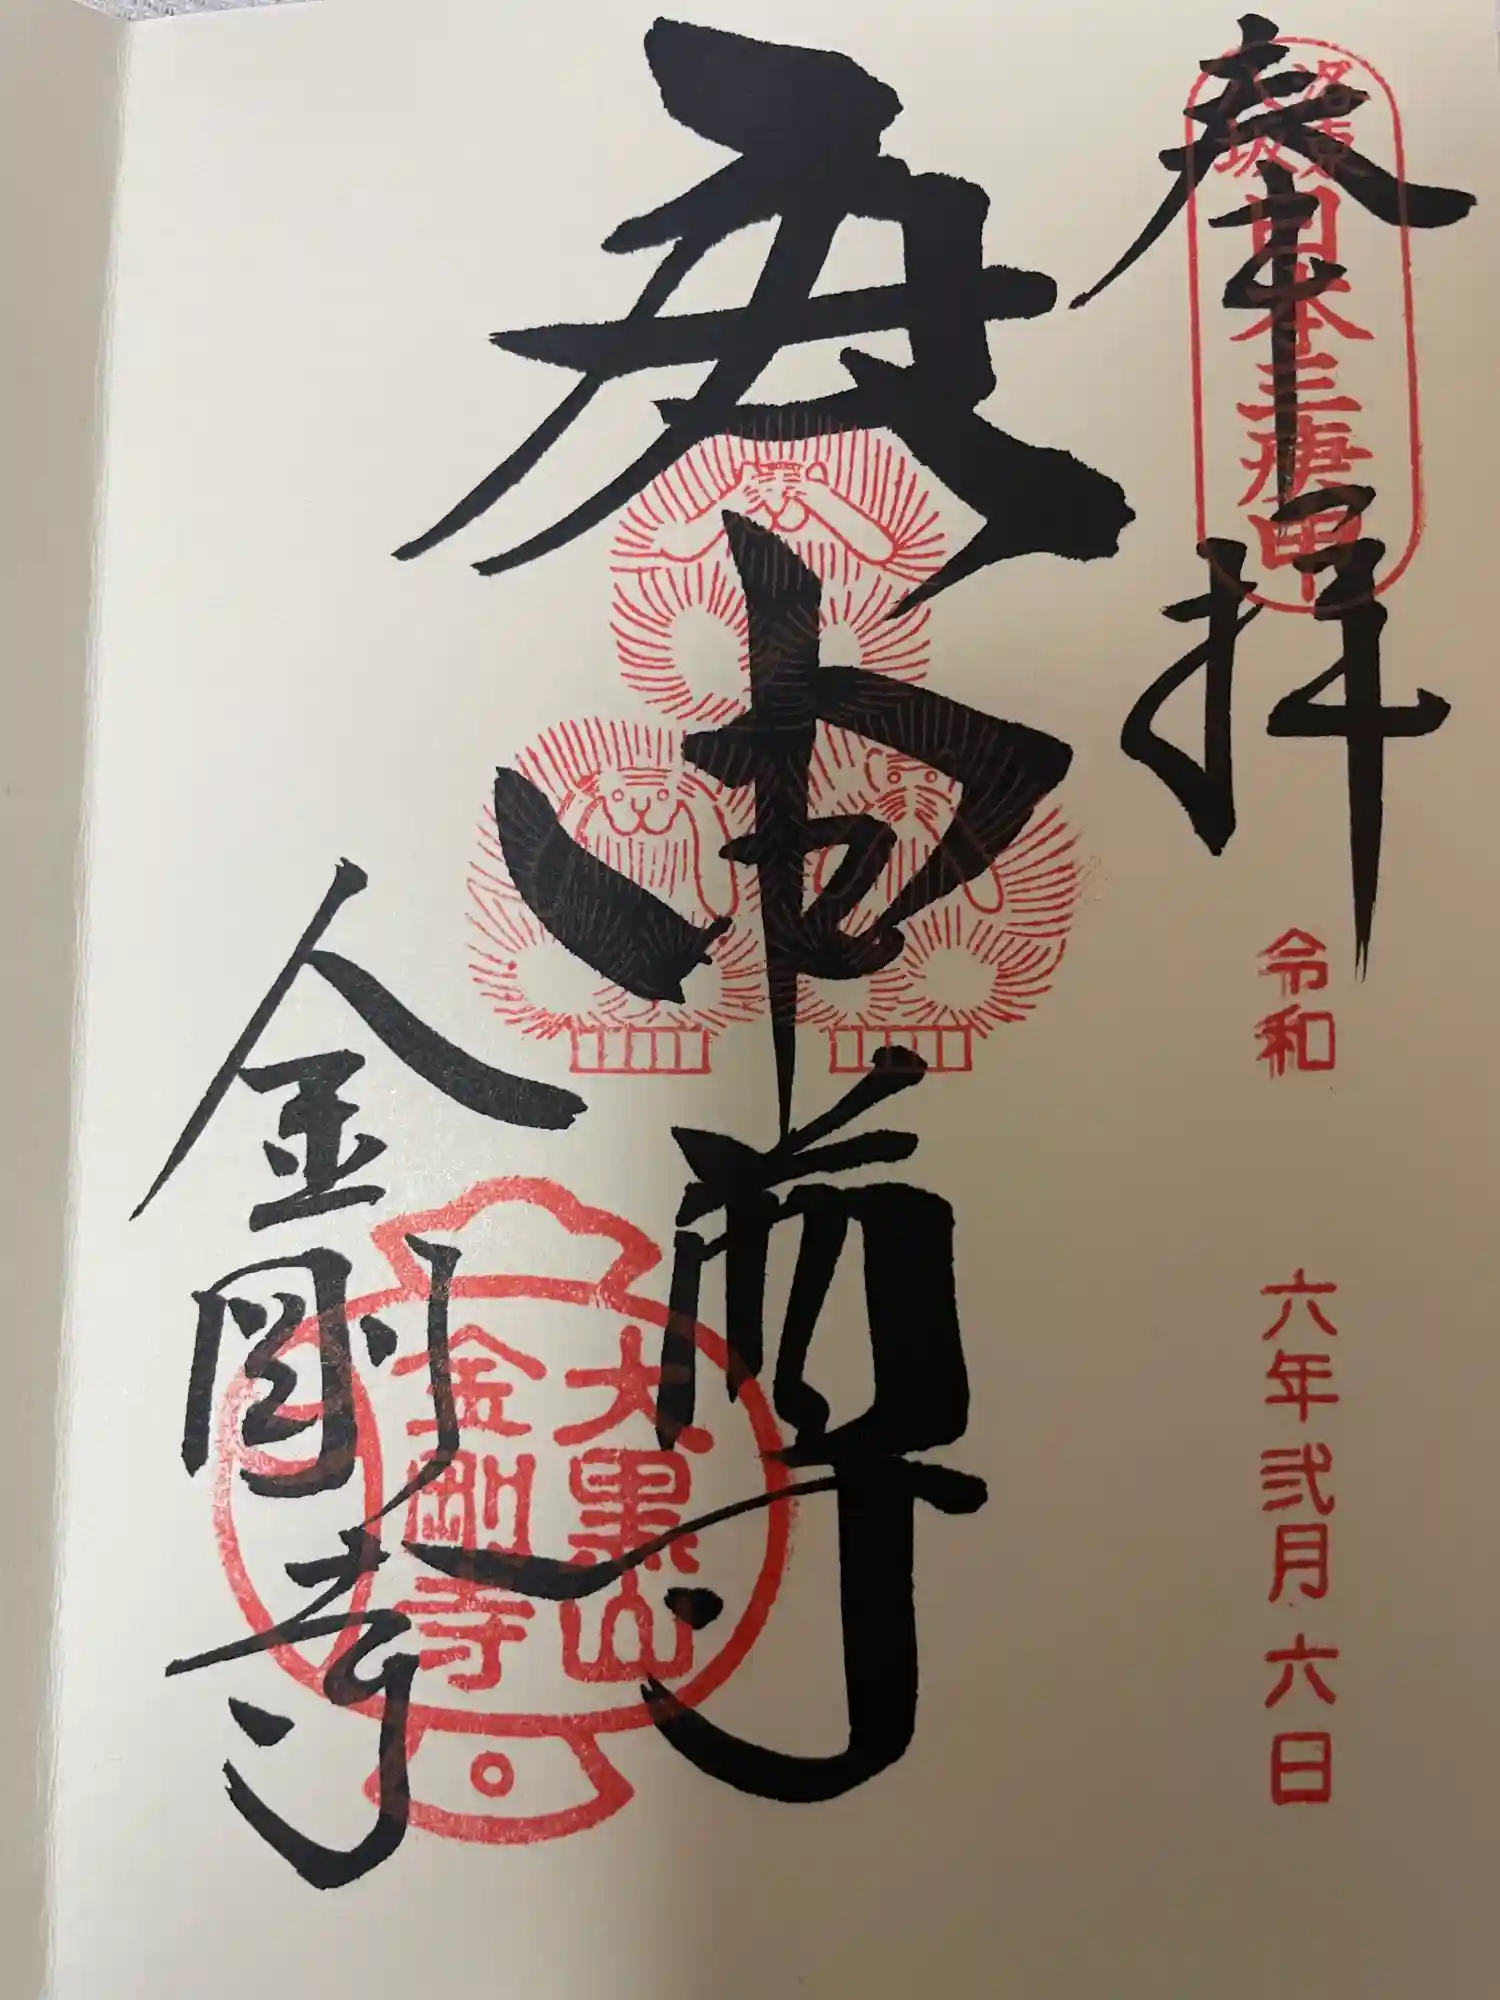 奉拝
洛東
八坂
日本三庚申
令和 六年 弐月 六日
庚申尊
大黒山
金剛寺
金剛寺